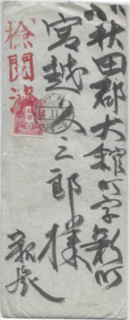 秋田郡大舘町字新町
宮越又三郎様
親展
検閲済